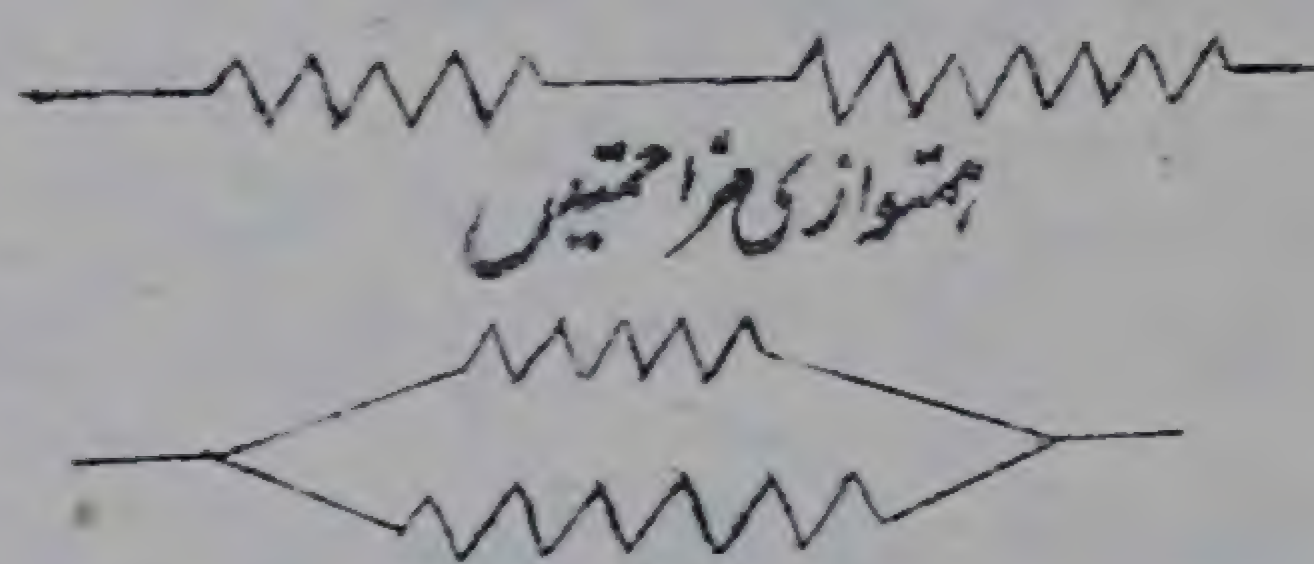 ہمتوازی مزاحمتیں